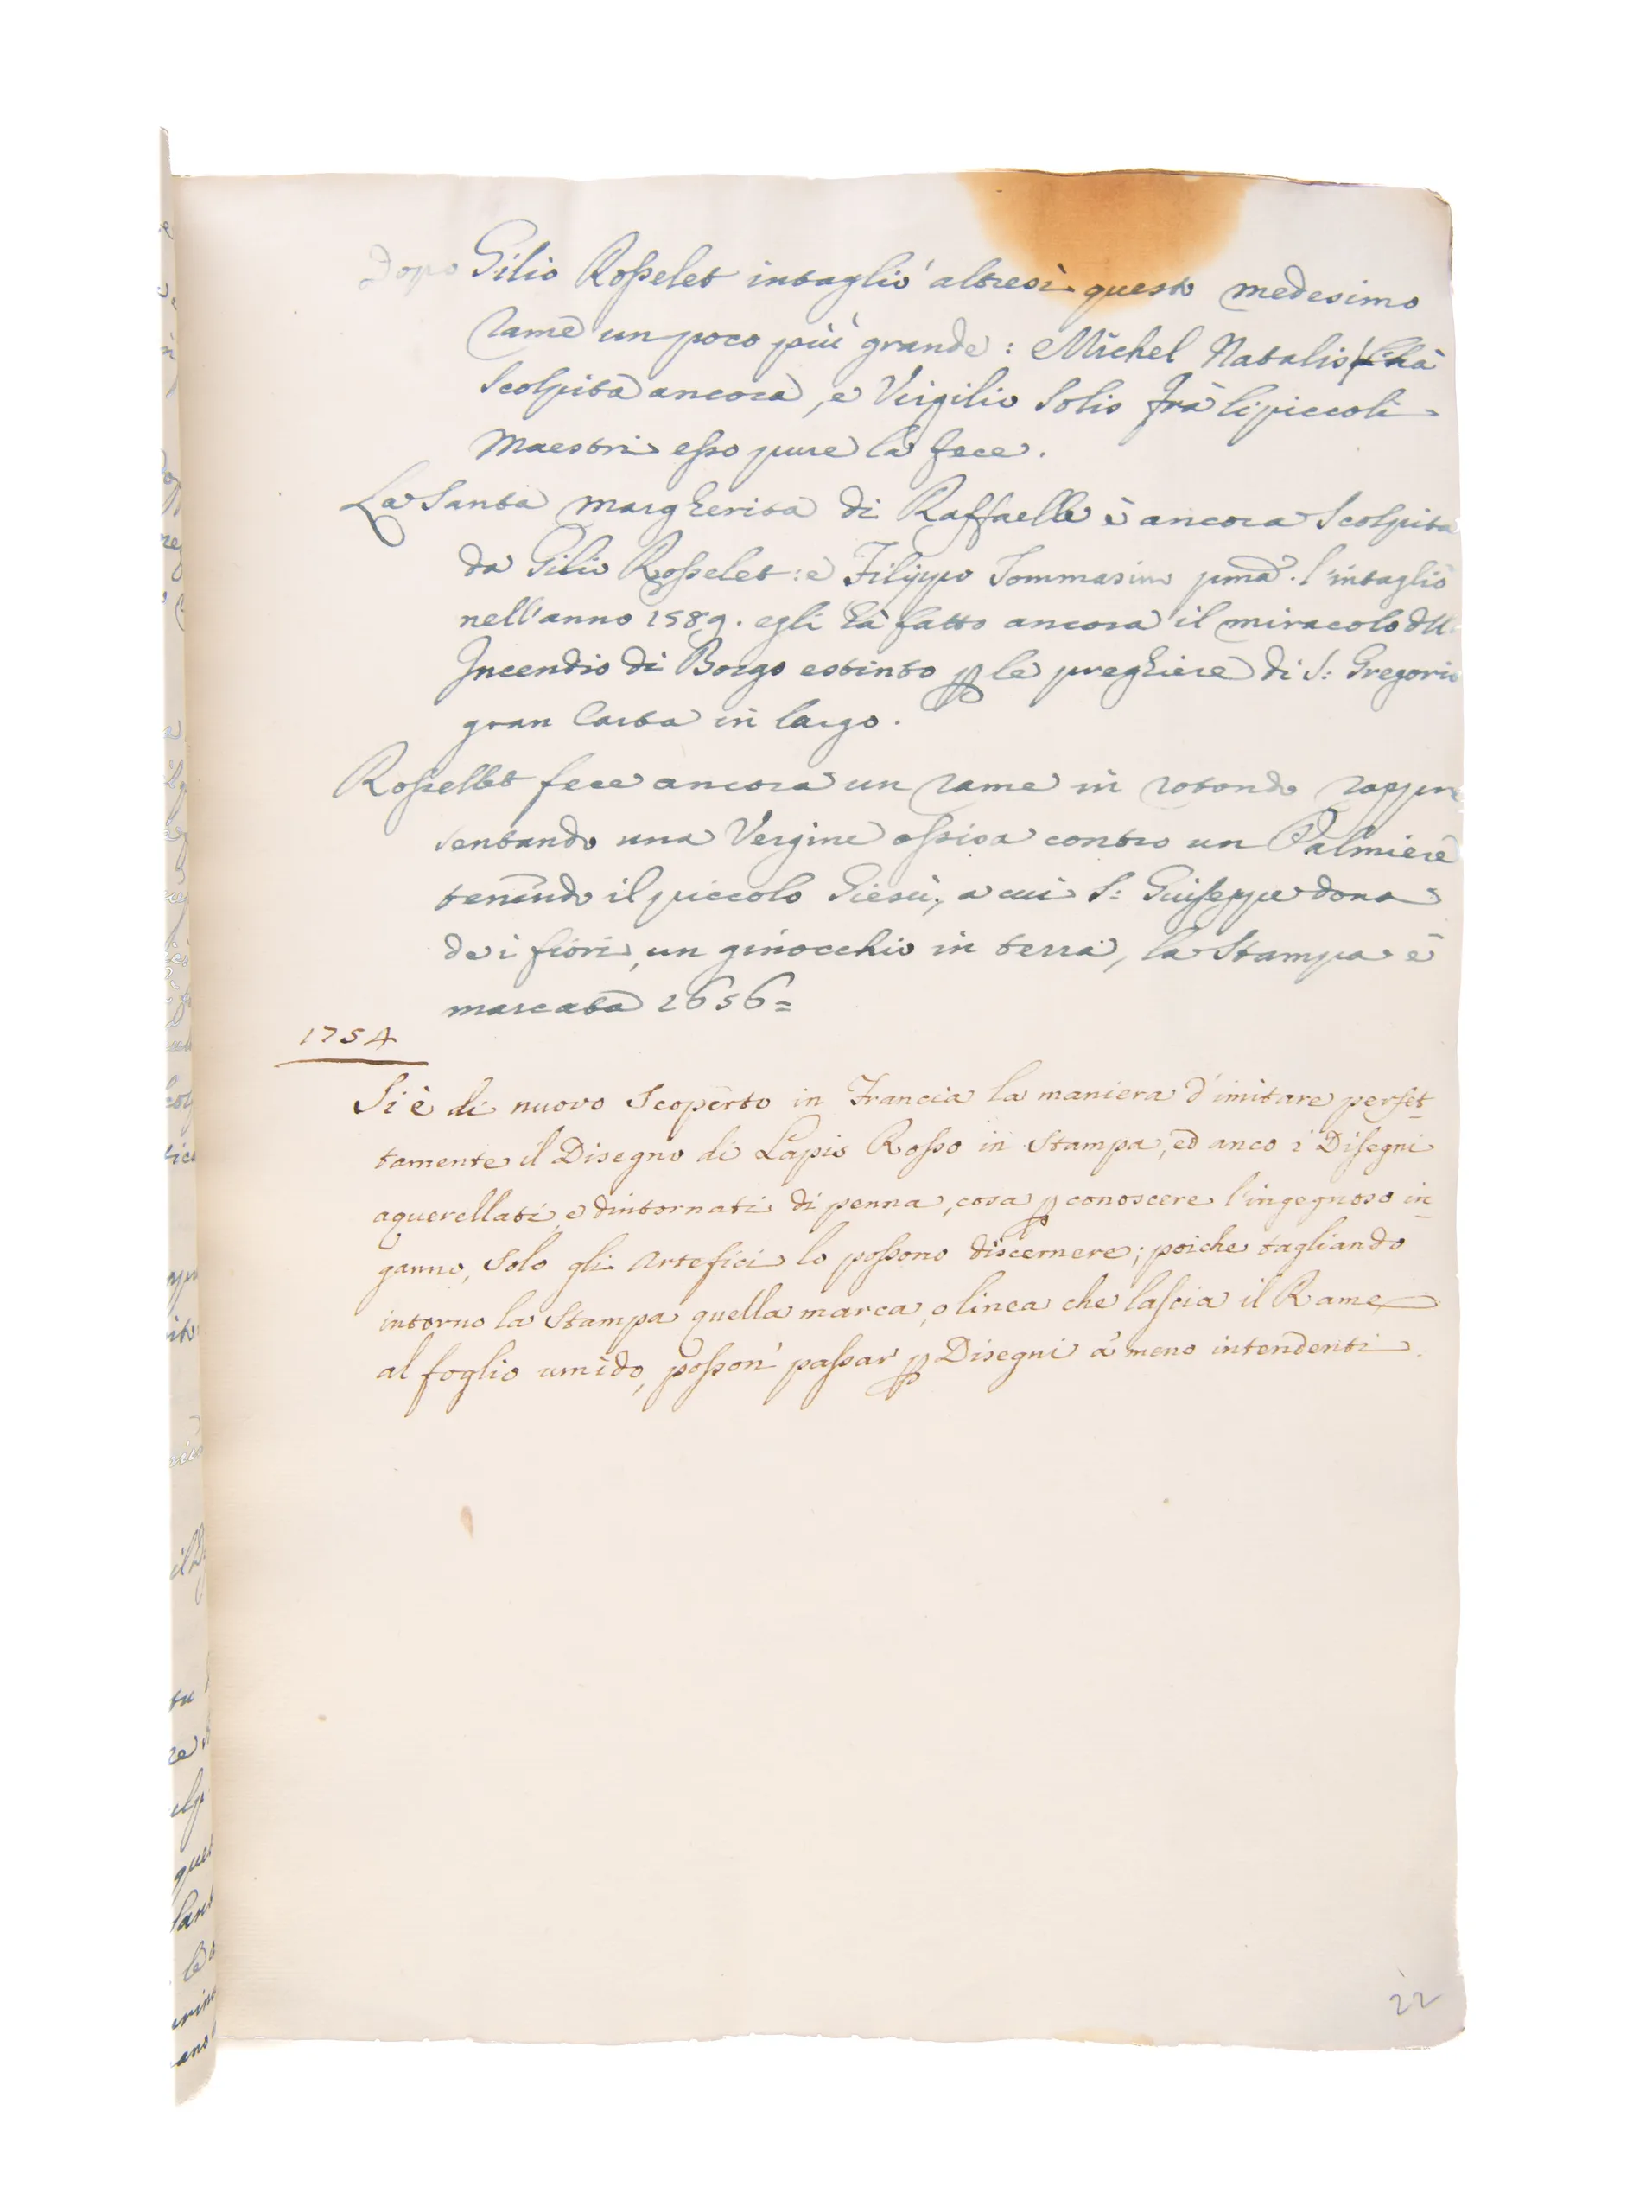 Dopo Gilio Rosselet intagliò altresì questo medesimo
rame un poco più grande : Michel Natalis l'hà
scolpita ancora, e Virgilio Solis frà li piccoli
Maestri esso pure la fece.
La Santa Margherita di Raffaelle è ancora scolpita
da Gilio Rosselet : e Filippo Tommasino pma. l'intagliò
nell'anno 1589. egli hà fatto ancora il miracolo dell
Incendio di Borgo estinto p le preghiere di S: Gregorio
gran Carta in largo.
Rossellet fece ancora un rame in rotondo rappre
sentando una Vergine assisa contro un Palmiere
tenendo il piccolo Giesù, a cui S: Guiseppe dona
dei fiori, un ginocchio in terra, la Stampa è
marcata 1656=
1754
Si è di nuovo scoperto in Francia la maniera d'imitare perfet
tamente il Disegno di Lapis Rosso in Stampa, ed anco i Disegni
aquerellati, e dintornati di penna, cosa p conoscere l'ingegnoso in
ganno, solo gli Artefici lo possono discernere; poiche tagliando
intorno la Stampa quella marca, o linea che lascia il Rame
al foglio umido, posson' passar p Disegni a' meno intendenti.
22